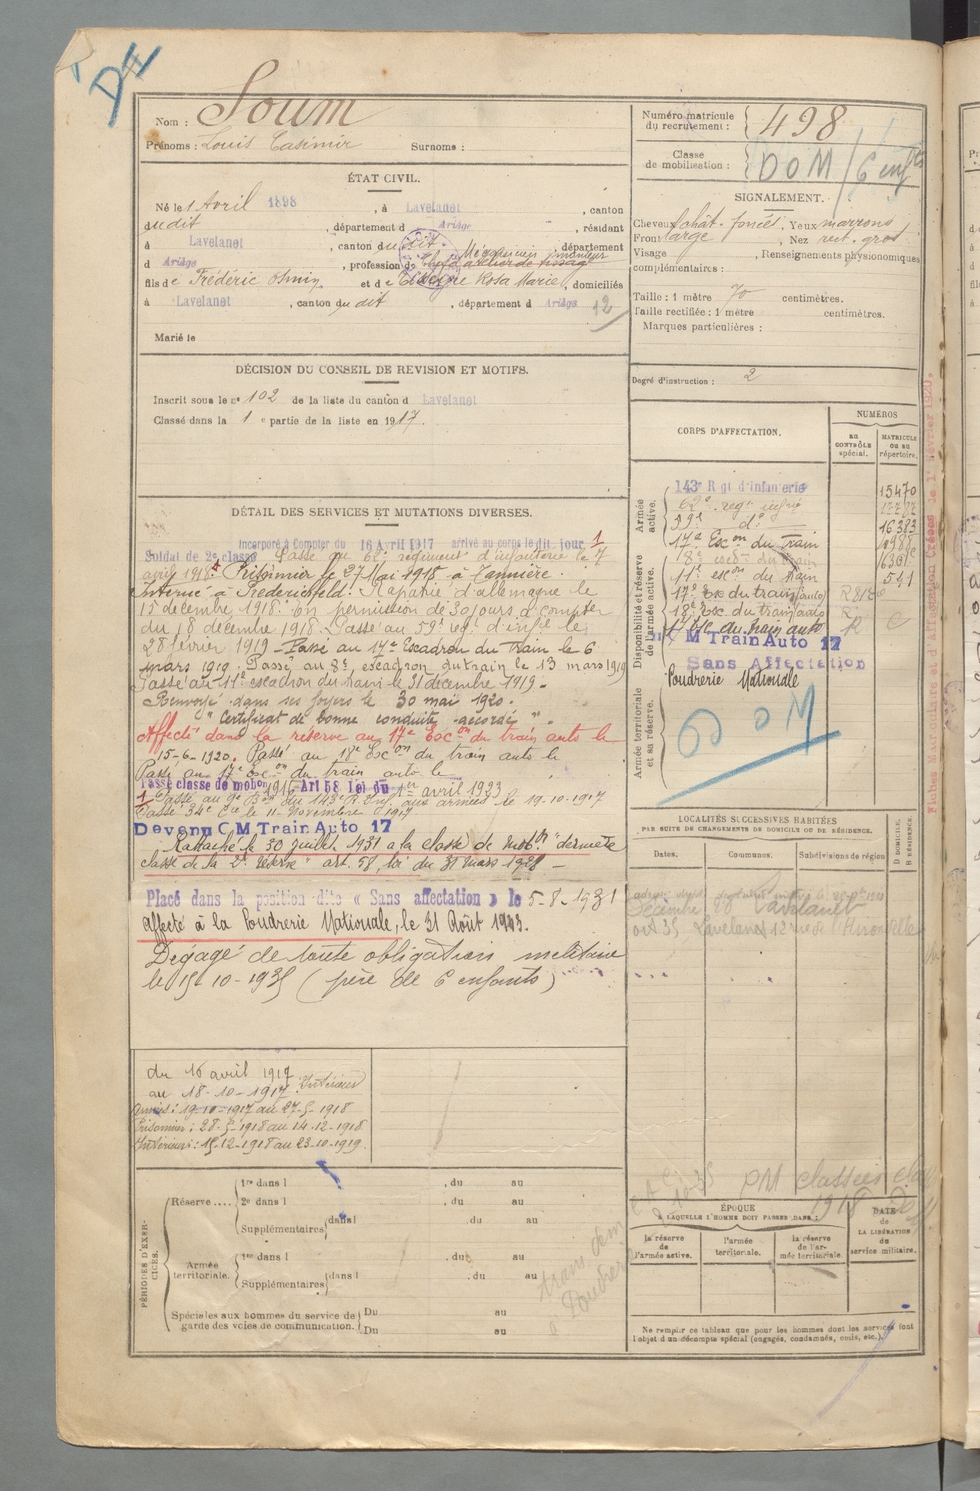 D4
Nom : Soum
Prénoms : Louis Casimir Surnoms :
Numéro matricule du recrutement : 498
Classe de mobilisation : DOM / 6 enfts
ÉTAT CIVIL.
Né le 1 Avril 1898, à Lavelanet, canton
dudit, département d Ariège, résidant
à Lavelanet, canton du dit, département
d Ariège, profession de Mécanicien monteur
fils de Frédéric Osmin et de Rosa Marie, domiciliés
à Lavelanet, canton du dit, département d Ariège 12
Marié le
SIGNALEMENT.
Cheveux chât. foncé, Yeux marrons
Front large, Nez rect. gros
Visage , Renseignements physionomiques
complémentaires :
Taille : 1 mètre 70 centimètres.
Taille rectifiée : 1 mètre centimètres.
Marques particulières :
Degré d'instruction : 2
DÉCISION DU CONSEIL DE REVISION ET MOTIFS.
Inscrit sous le n° 102 de la liste du canton d Lavelanet
Classé dans la 1e partie de la liste en 1917.
DÉTAIL DES SERVICES ET MUTATIONS DIVERSES.
Incorporé à Compter du 16 Avril 1917 arrivé au corps le dit jour 1
Soldat de 2e classe Passé au 62e régiment d'infanterie le 7
avril 1918. Prisonnier le 27 Mai 1918 à Vannière.
Interné à Friedrichsfeld. Rapatrié d'allemagne le
15 décembre 1918. En permission de 30 jours à compter
du 18 décembre 1918. Passé au 59e regt d'infie le
28 février 1919 - Passé au 17e Escadron du Train le 6
mars 1919. Passé au 18e escadron du train le 13 mars 1919
Passé au 11e escadron du train le 31 décembre 1919.
Renvoyé dans ses foyers le 30 mai 1920.
"Certificat de bonne conduite accordé".
Affecté dans la réserve au 17e Escon du train auto le
15-6-1920. Passé au 18e Escon du train auto le
Passé au 17e Escon du train auto le
Passé classe de mobon 1916 - Art 58 Loi du 1er avril 1923
1 Passé au 9e Bon du 143e R. Inf. aux armées le 19-10-1917
Passé 34e Cie le 11 Novembre 1917
Devenu C M Train Auto 17
Rattaché le 30 juillet 1931 à la classe de mobon "dernière
classe de la 2e réserve" art. 58, loi du 31 mars 1928 -
Placé dans la position dite « Sans affectation » le 5-8-1931
affecté à la Poudrerie Nationale, le 31 Août 1933.
Dégagé de toute obligation militaire
le 15-10-1935 (père de 6 enfants)
CORPS D'AFFECTATION.
NUMÉROS
AU CONTRÔLE spécial.
MATRICULE OU AU répertoire.
Armée active.
143e Rgt d'Infanterie 15470
62e regt infie
59e do 16383
17e Escon du Train
18e escon du train
11e escon du train 541
Disponibilité et réserve de l'armée active.
17e Esc du train (auto)
18e Esc du train (auto)
17e Esc du train auto R
C M Train Auto 17
Sans Affectation
Poudrerie Nationale
Armée territoriale et sa réserve.
DOM
Fiches Matriculaire et d'Affectation Créées le 1er Février 1920.
LOCALITÉS SUCCESSIVES HABITÉES
PAR SUITE DE CHANGEMENTS DE DOMICILE OU DE RÉSIDENCE.
Dates. Communes. Subdivisions de région
D. DOMICILE. R. RÉSIDENCE.
Lavelanet
oct 35 Lavelanet 12 rue de l'Hirondelle
du 16 avril 1917
au 18-10-1917 : Intérieur
Armées : 19-10-1917 au 27-5-1918
Prisonnier : 28-5-1918 au 14-12-1918
Intérieur : 15-12-1918 au 23-10-1919.
PÉRIODES D'EXERCICES.
Réserve.... 1re dans l , du au
2e dans l , du au
Supplémentaires dans l , du au
Armée territoriale. 1re dans l , du au
Supplémentaires dans l , du au
Spéciales aux hommes du service de garde des voies de communication. Du au
Du au
PM classés
1918
ÉPOQUE
À LAQUELLE L'HOMME DOIT PASSER DANS :
la réserve de l'armée active.
l'armée territoriale.
la réserve de l'armée territoriale.
DATE de LA LIBÉRATION du service militaire.
Ne remplir ce tableau que pour les hommes dont les services font
l'objet d'un décompte spécial (engagés, condamnés, omis, etc.)